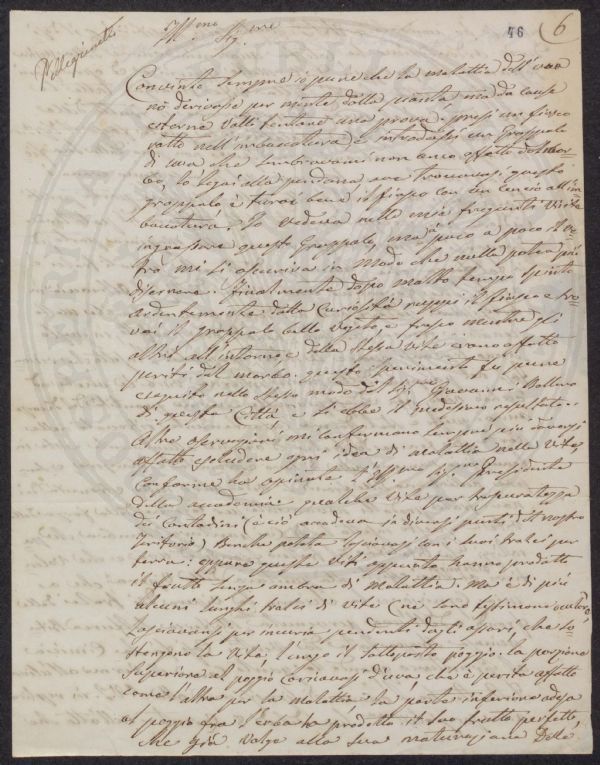 46 6
Pellegrinetti
Ill.mo Sig.re
Convinto sempre io pure che la malattia dell'uva
nõ derivasse per niente dalla pianta, ma da cause
esterne volli tentare una prova: presi un fiasco
rotto nell'imboccatura e introdussi un Grappolo
di uva che sembravami non anco affatto dal mor=
bo, lo legai alla pendana, ove trovavasi questo
grappolo e turai bene il fiasco con un cencio all'im
boccatura. Io vedeva nelle mie frequenti visite
ingrossare questo Grappolo, ma a poco a poco il ve=
tro mi si oscurava in modo che nulla potea più
discernere. Finalmente dopo molto tempo spinto
ardentemente dalla curiosità ruppi il fiasco e tro=
vai il grappolo bello vegeto, e fresco mentre gli
altri all'intorno e della stessa vite erano affatto
periti dal morbo. questo sperimento fu pure
eseguito nello stesso modo dal Sig.re Giovanni
di questa Città e si ebbe il medesimo resultato.
Altre osservazioni mi confermano sempre più doversi
affatto escludere ogni idea di malattia nelle Vite,
conforme ha opinato l'Ill.mo Sig. Presidente
della accademia qualche vite per trascuratezza
dei Contadini (e ciò accadeva in diversi punti del nostro
Teritorio) Benche potata lasciavasi con i suoi tralci per
terra: eppure queste viti appunto hanno prodotto
il frutto senza ombra di malattia. Ma è di più
alcuni lunghi tralci di vite (ne sono testimoni oculare)
Lasciavansi per incuria pendenti dagli alberi, che so=
stengono la vite, lungo il sottoposto poggio. la porzione
superiore al poggio carica d'uva, che è perita affatto
come l'altra per la malattia, la parte inferiore adesa
al poggio fra l'erba ha prodotto il suo frutto perfetto,
che già volge alla sua maturazione Delle